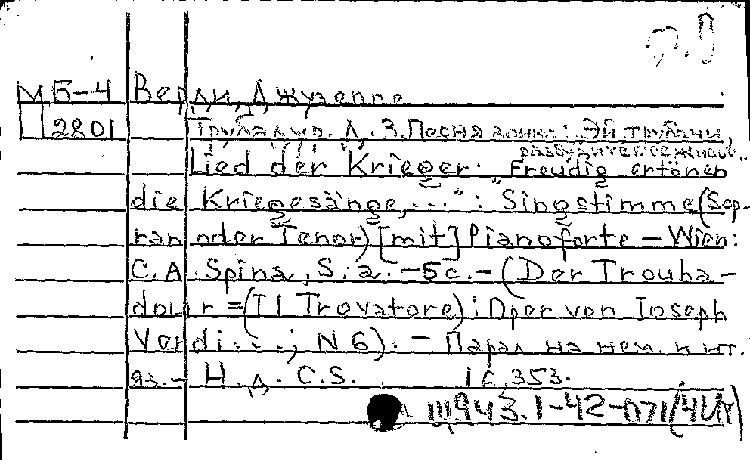 МБ-4 Верди, Джузеппе
Ц 2801 Трубадур. Д. 3. Песня воина: Эй трубачи,
Lied der Krieger. „Freudig ertönen
die Kriegesänge,..." : Singstimme (Sop-
ran oder Tenor) [mit] Pianoforte – Wien:
C.A. Spina, S.a. – 5c. – (Der Trouba-
dour = (Il Trovatore) : Oper von Joseph
Verdi...; N 6). – Парал на нем. и ит.
яз. – Н.д. C.S. 16,353.
Ш943.1-42-071/4Ит)